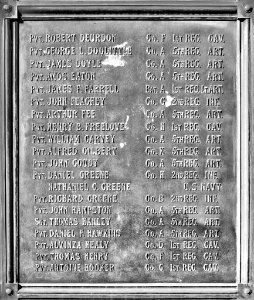 Pvt. ROBERT DEURDON Co. F 1st REG. CAV.
Pvt. GEORGE L. DOOLITTLE Co. A 5th REG. ART.
Pvt. JAMES DOYLE Co. A 5th REG. ART.
Pvt. AMOS EATON Co. A 5th REG. ART.
Pvt. JAMES F. FARRELL Bat. A 1st REG. L. ART.
Pvt. JOHN FEAGHEY Co. 2nd REG. INF.
Pvt. ARTHUR FEE Co. A 5th REG. ART.
Pvt. HENRY B. FREELOVE Co. H 1st REG. CAV.
Pvt. WILLIAM GARVEY Co. A 5th REG. ART.
Pvt. ALFRED GILBERT Co. A 5th REG. ART.
Pvt. JOHN GOUDY Co. A 5th REG. ART.
Pvt. DANIEL GREENE Co. H 2nd REG. INF.
NATHANIEL C. GREENE U.S. NAVY
Pvt. RICHARD GREENE Co. B 2nd REG. INF.
Pvt. JOHN HAMPSTON Co. A 5th REG. ART.
Sgt. THOMAS HANLEY Co. A 5th REG. ART.
Pvt. DANIEL A. HAWKINS Co. A 5th REG. ART.
Pvt. ALVINZA HEALY Co. D 1st REG. CAV.
Pvt. THOMAS HENRY Co. F 1st REG. CAV.
Pvt. ANTOINE HOOKER Co. G 1st REG. CAV.